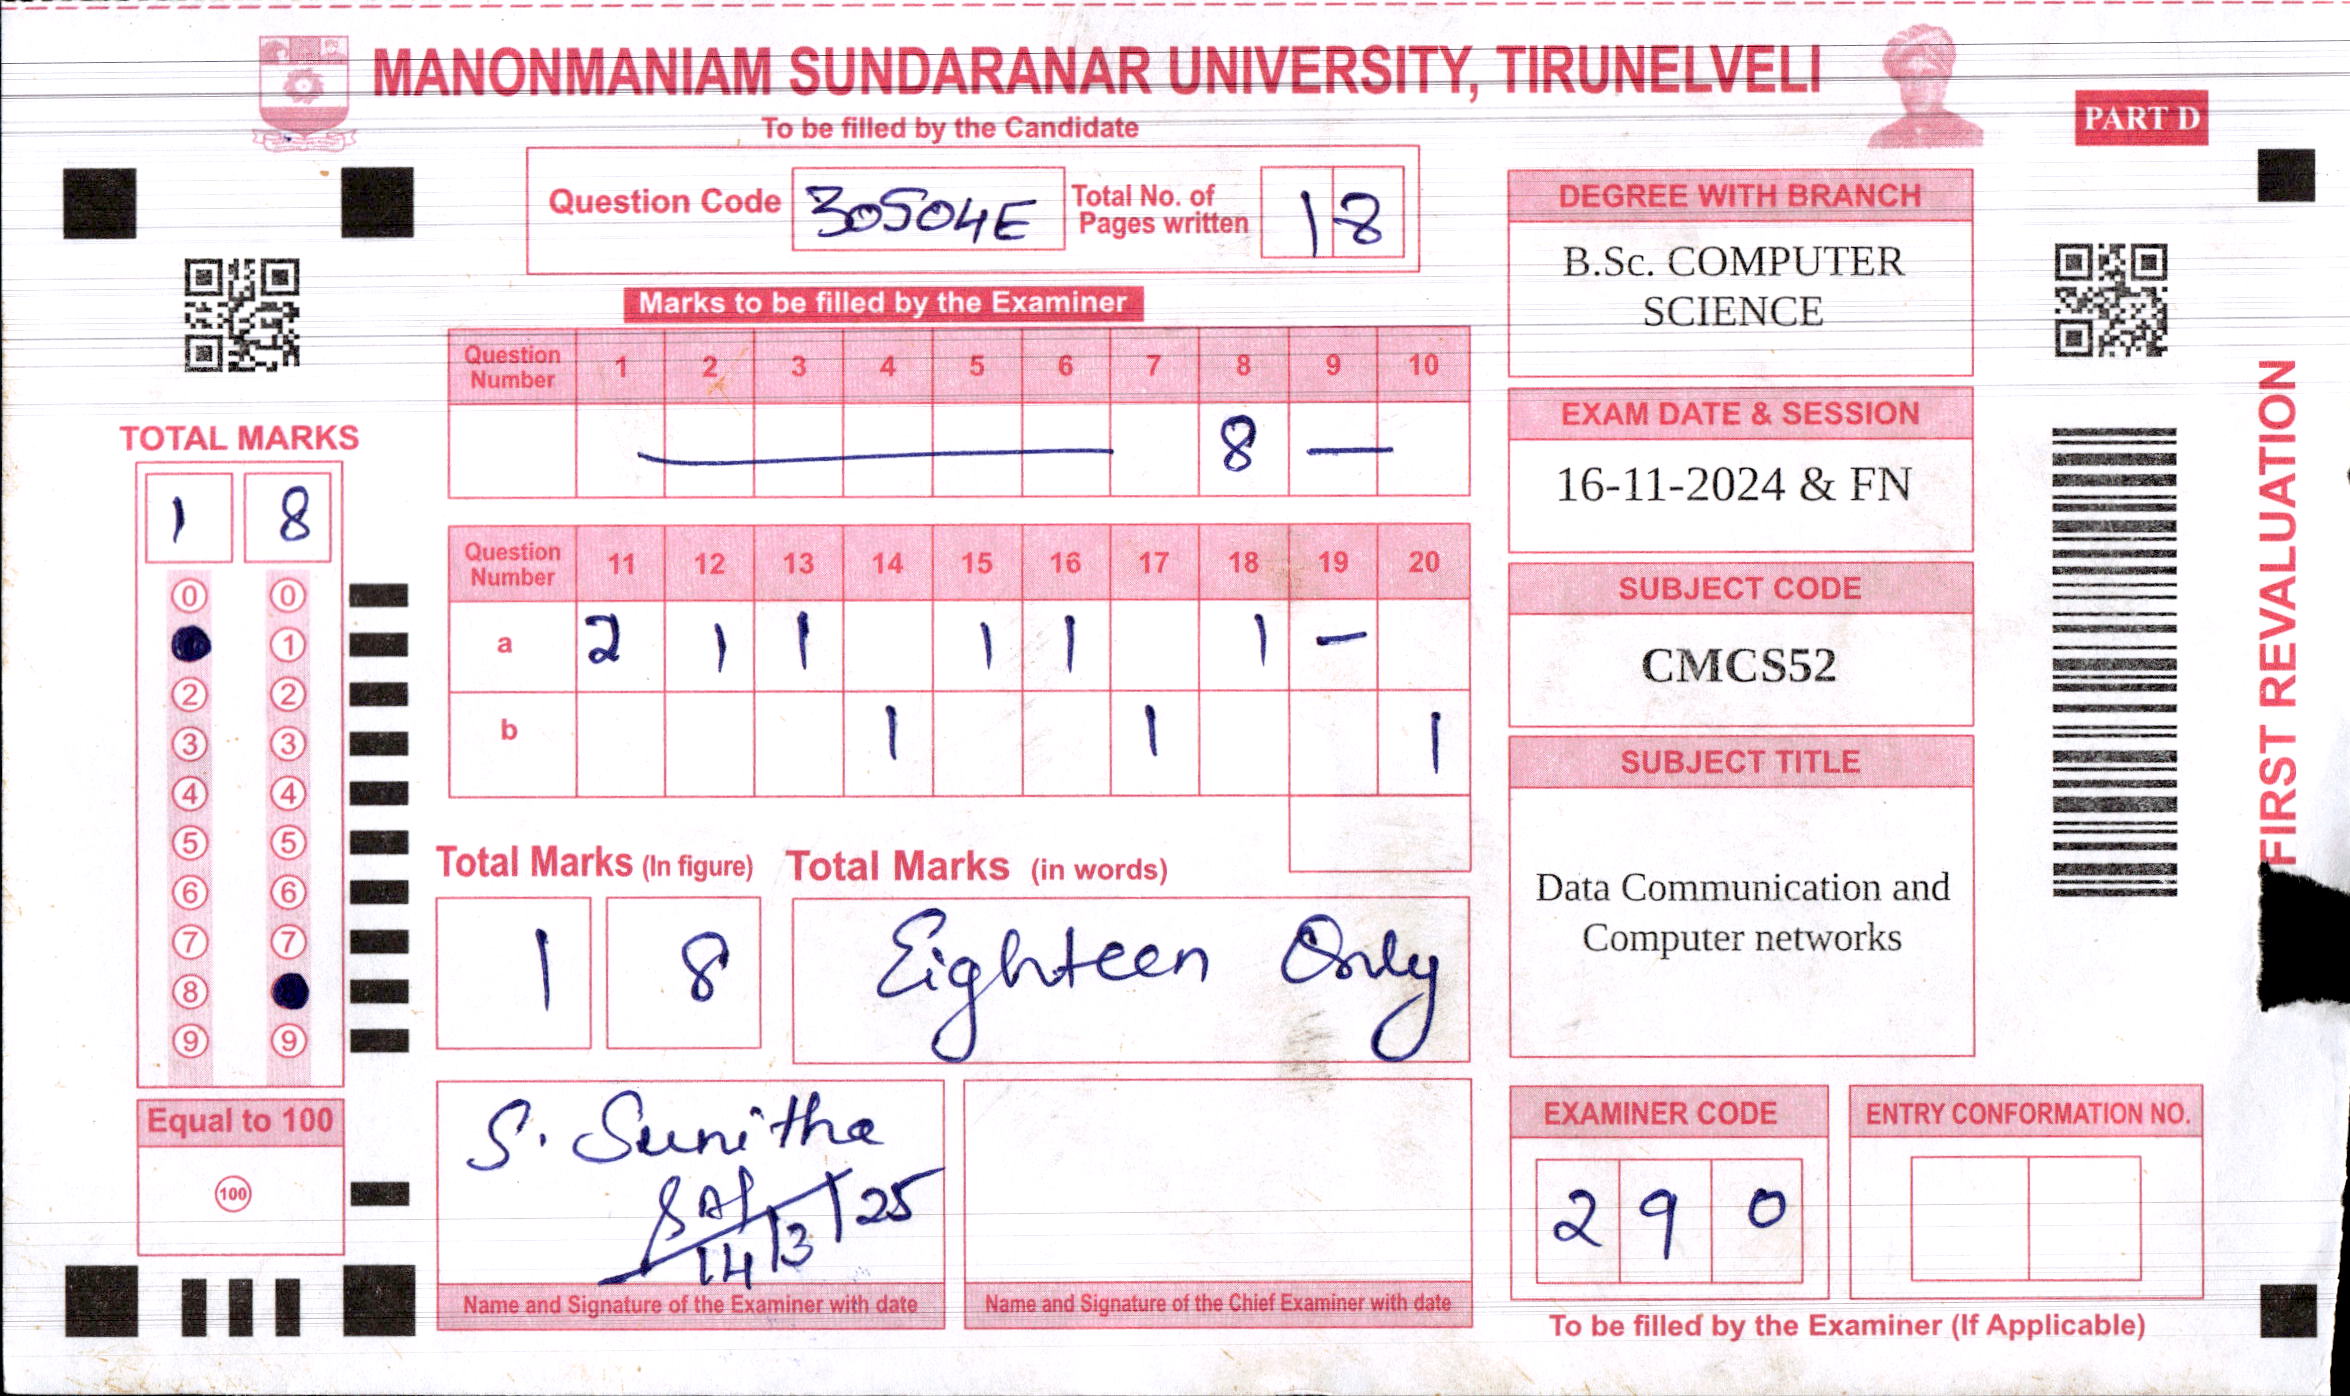 MANONMANIAM SUNDARANAR UNIVERSITY, TIRUNELVELI
To be filled by the Candidate
PART D
Question Code 30504E Total No. of Pages written 18
Marks to be filled by the Examiner
Question Number 1 2 3 4 5 6 7 8 9 10
— 8 —
Question Number 11 12 13 14 15 16 17 18 19 20
a 2 1 1 1 1 1 –
b 1 1 1
Total Marks (In figure) Total Marks (in words)
1 8 Eighteen Only
S. Sunitha
14/3/25
Name and Signature of the Examiner with date
Name and Signature of the Chief Examiner with date
TOTAL MARKS
1 8
0 0
1
2 2
3 3
4 4
5 5
6 6
7 7
8
9 9
Equal to 100
100
DEGREE WITH BRANCH
B.Sc. COMPUTER
SCIENCE
EXAM DATE & SESSION
16-11-2024 & FN
SUBJECT CODE
CMCS52
SUBJECT TITLE
Data Communication and
Computer networks
EXAMINER CODE
2 9 0
ENTRY CONFORMATION NO.
To be filled by the Examiner (If Applicable)
FIRST REVALUATION